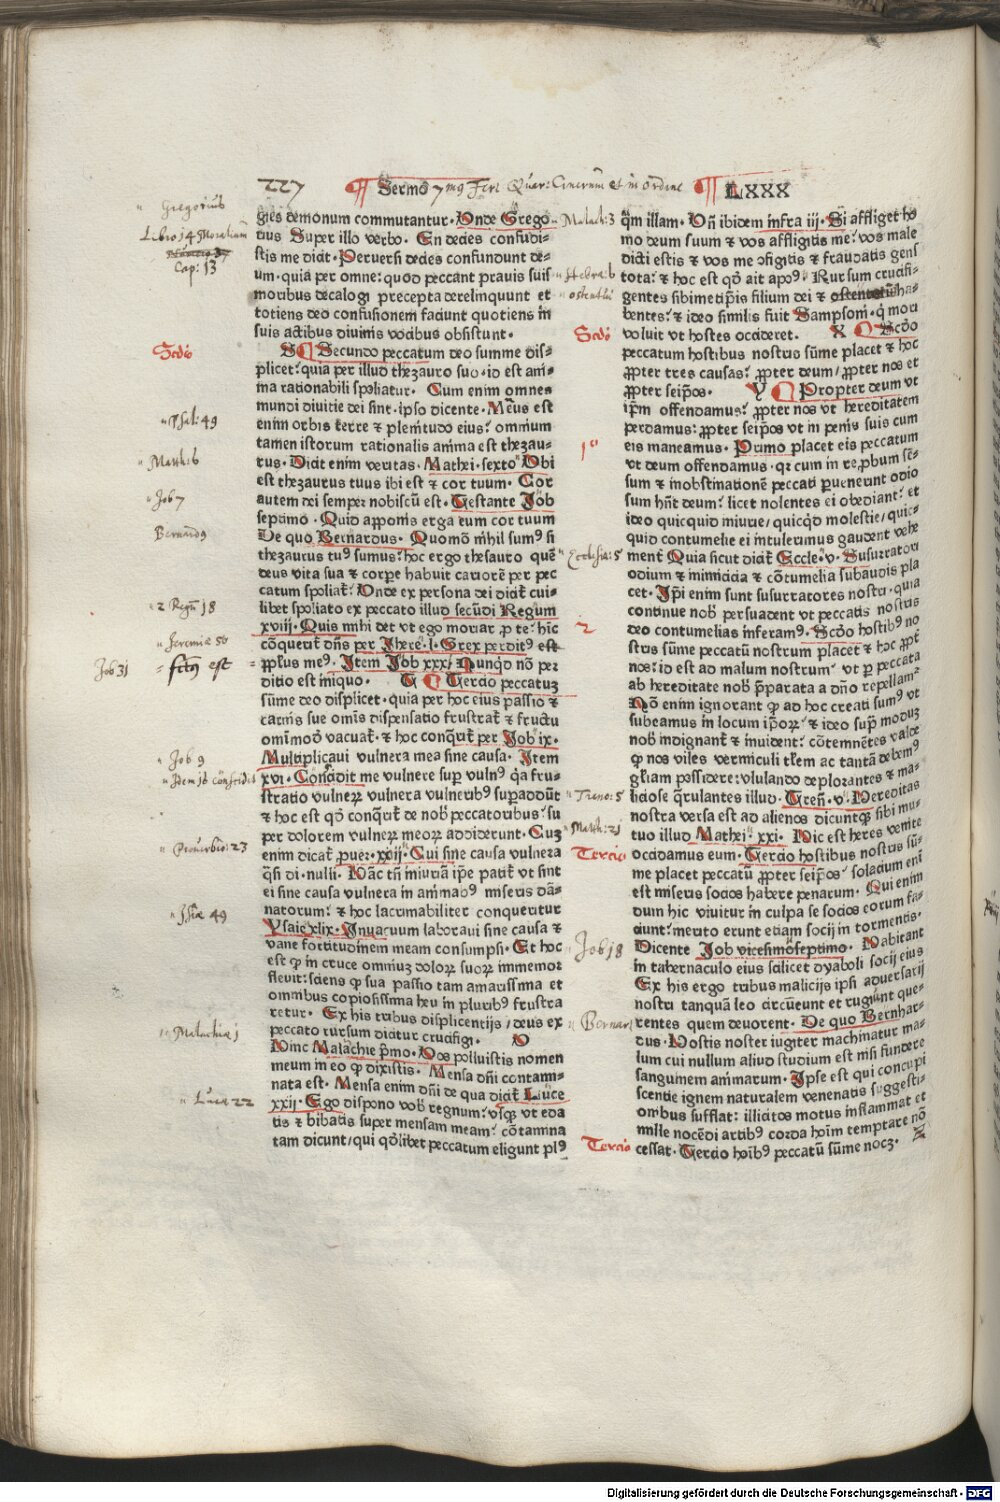 227 Sermo LXXX
gies demonum commutantur. Unde Grego⸗
rius Super illo verbo. En decies confudi⸗
stis me dicit. Peruersi decies confundunt de⸗
um. quia per omne: quod peccant prauis suis
moribus decalogi precepta derelinquunt et
totiens deo confusionem faciunt quotiens in
suis actibus diuinis vocibus obsistunt.
Secundo peccatum deo summe dis⸗
plicet. quia per illud thezauro suo. id est ani⸗
ma rationabili spoliatur. Cum enim omnes
mundi diuitie dei sint. ipso dicente. Meus est
enim orbis terre ⁊ plenitudo eius. omnium
tamen istorum rationalis anima est thezau⸗
rus. Dicit enim veritas. Mathei. sexto Ubi
est thezaurus tuus ibi est ⁊ cor tuum. Cor
autem dei semper nobiscū est. Testante Job
septimo. Quid apponis erga eum cor tuum
De quo Bernardus. Quomō nihil sumꝰ si
thezaurus tuꝰ sumus. hoc ergo thesauro quē
deus vita sua ⁊ corpe habuit cariorē per pec
catum spoliat̄. Unde ex persona dei dicit̄ cui⸗
libet spoliato ex peccato illud secūdi Regum
xviij. Quis mihi det vt ego moriar ꝓ te. hic
cōquerit̄ dn̄s per Jhere. l. Grex perditꝰ est
ppl̄us meꝰ. Item Job xxxi Nunqd nō per
ditio est iniquo. G Tercio peccatuꝫ
sūme deo displicet. quia per hoc eius passio ⁊
carnis sue omīs dispensatio frustrat̄ ⁊ fructu
omīmodo vacuat̄. ⁊ hoc conqrit̄ per Job ix.
Multiplicaui vulnera mea sine causa. Item
xvi. Concidit me vulnere sup vulnꝰ qa fru⸗
stratio vulneꝝ vulnera vulneribꝰ supaddūt
⁊ hoc est qd̄ conqrit̄ de nob peccatoribus. su
per dolorem vulneꝝ meoꝝ addiderunt. Cuꝫ
enim dicat̄ ꝓuer. xxiij. Cui sine causa vulnera
qsi di. nulli. Hāc tn̄ iniuriā ipe patit̄ vt sint
ei sine causa vulnera in animabꝰ miseris dā⸗
natorum. ⁊ hoc lacrimabiliter conqueritur
Ysaie xlix. Inuacuum laboraui sine causa ⁊
vane fortitudinem meam consumpsi. Et hoc
est ꝙ in cruce omniuꝫ doloꝝ suoꝝ immemor
fleuit. sciens ꝙ sua passio tam amarissima et
omnibus copiosissima heu in pluribꝰ frustra
retur. Ex his tribus displicentijs deus ex
peccato rursum dicitur crucifigi. O
Hinc Malachie p̄mo. Uos polluistis nomen
meum in eo ꝙ dixistis. Mensa dn̄i contami⸗
nata est. Mensa enim dn̄i de qua dicit̄ Luce
xxij. Ego dispono vob regnum. vsqꝫ vt eda
tis ⁊ bibatis super mensam meam. cōtamina
tam dicunt. qui qd̄libet peccatum eligunt plꝰ
qm̄ illam. Un̄ ibidem infra iij. Si affliget ho
mo deum suum ⁊ vos affligitis me. vos male
dicti estis ⁊ vos me ꝯfigitis ⁊ fraudatis gens
tota. ⁊ hoc est qd̄ ait apoꝰ. Rursum crucifi⸗
gentes sibimetipsis filium dei ⁊ ostentatū ha⸗
bentes. ⁊ ideo similis fuit Sampsoni. q̄ mori
voluit vt hostes occideret. X Scdo
peccatum hostibus nostris sūme placet ⁊ hoc
ꝓpter tres causas. ꝓpter deum/ ꝓpter nos et
ꝓpter seipos. Y Propter deum vt
ipm offendamus. ꝓpter nos vt hereditatem
perdamus. ꝓpter seipos vt in penis suis cum
eis maneamus. Primo placet eis peccatum
vt deum offendamus. qr cum in reꝓbum sē⸗
sum ⁊ inobstinationē peccati puenerunt odio
sum hn̄t deum. licet nolentes ei obediant. et
ideo quicquid iniurie/ quicqd molestie/ quic⸗
quid contumelie ei intulerimus gaudent vehe
ment̄ Quia sicut dicit̄ Eccle. v. Susurratori
odium ⁊ inimicicia ⁊ cōtumelia subaudis pla
cet. Ipi enim sunt susurratores nostri. quia
continue nob persuadent vt peccatis nostris
deo contumelias inferamꝰ. Scdo hostibꝰ no
stris sūme peccatū nostrum placet ⁊ hoc ꝓpt̄
nos. id est ad malum nostrum. vt p peccata
ab hereditate nob pparata a dn̄o repellamꝰ
Nō enim ignorant ꝙ ad hoc creati sumꝰ vt
subeamus in locum ipoꝝ. ⁊ ideo sup̄ moduꝫ
nob indignant̄ ⁊ inuident. cōtemnētes valde
ꝙ nos viles vermiculi tlem ac tantā debemꝰ
gl̄iam possidere. vlulando deplorantes ⁊ ma⸗
liciose qrulantes illud. Tren. v. Hereditas
nostra versa est ad alienos dicuntqꝫ sibi mu⸗
tuo illud Mathei. xxi. Hic est heres venite
occidamus eum. Tercio hostibus nostris sū⸗
me placet peccatū ꝓpter seipos. solacium enī
est miseris socios habere penarum. Qui enim
dum hic viuitur in culpa se socios eorum fa⸗
ciunt. merito erunt etiam socij in tormentis.
Dicente Job vicesimoseptimo. Habitant
in tabernaculo eius scilicet dyaboli socij eius
Ex his ergo tribus malicijs ipsi aduersarij
nostri tanquā leo circūeunt et rugiunt que⸗
rentes quem deuorent. De quo Bernhar⸗
dus. Hostis noster iugiter machinatur ma⸗
lum cui nullum aliud studium est nisi fundere
sanguinem animarum. Ipse est qui concupi
scentie ignem naturalem venenatis suggesti⸗
onibus sufflat. illicitos motus inflammat et
mille nocēdi artibꝰ corda hoīm temptare nō
cessat. Tercio hoībꝰ peccatū sūme nocꝫ. Z
Gregorius
Libro 14 Moralium
Cap: 13
Scdō
Psal: 49
Math: 6
Job 7
Bernardꝰ
2 Regū 18
Jeremiæ 50
Job 31
est
Job 9
Prouerbio: 23
Isaiæ 49
Malachiæ 1
Lucæ 22
Malach: 3
Hebræ: 6
Scdō
1º
Ecclesia: 5
2
Treno: 5
Math: 21
Tercio
Job 18
Bernar
Tercio
Digitalisierung gefördert durch die Deutsche Forschungsgemeinschaft - DFG